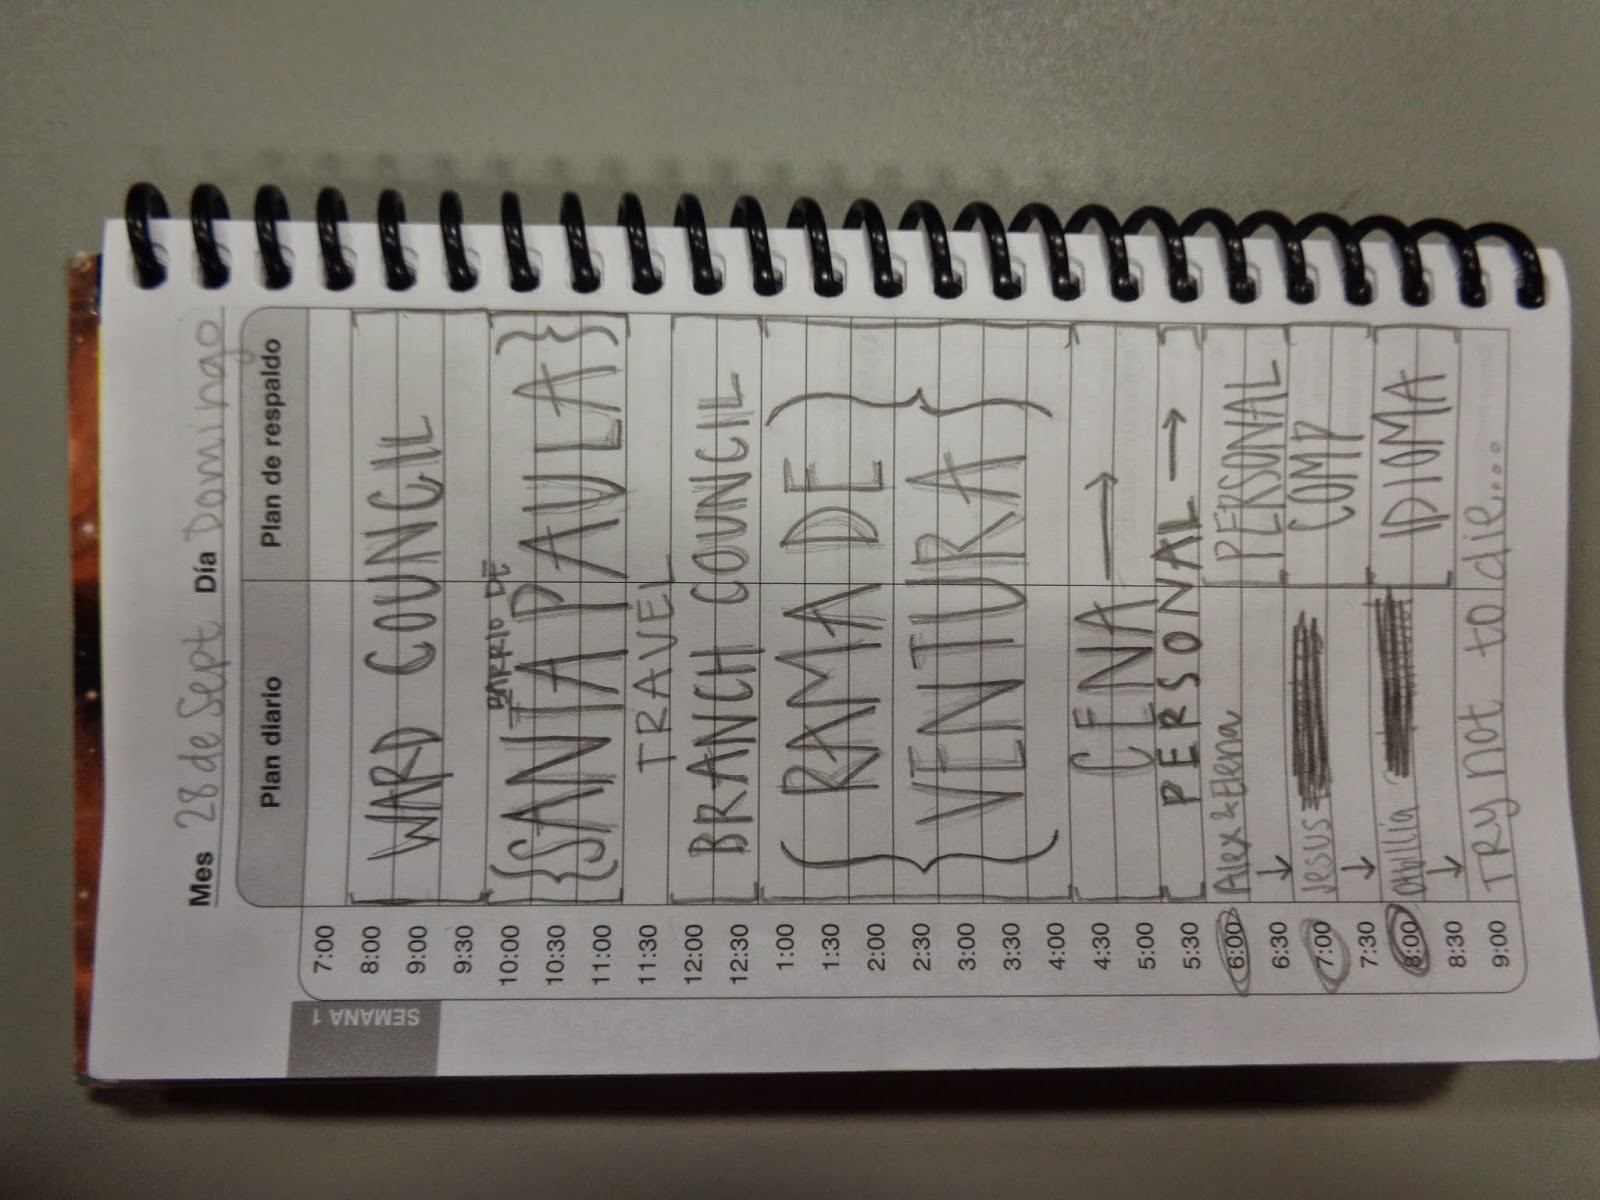 Mes 28 de Sept Día Domingo
Plan diario Plan de respaldo
SEMANA 1
7:00
8:00 WARD COUNCIL
9:00
9:30
BARRIO DE
10:00
10:30 {SANTA PAULA}
11:00
11:30 TRAVEL
12:00 BRANCH COUNCIL
12:30
1:00
1:30 { RAMA DE }
2:00
2:30 VENTURA
3:00
3:30
4:00
4:30 CENA →
5:00
5:30 PERSONAL →
6:00 Alex & Elena PERSONAL
6:30 ↓
7:00 Jesus COMP
7:30 ↓
8:00 IDIOMA
8:30 ↓
9:00 TRY not to die...